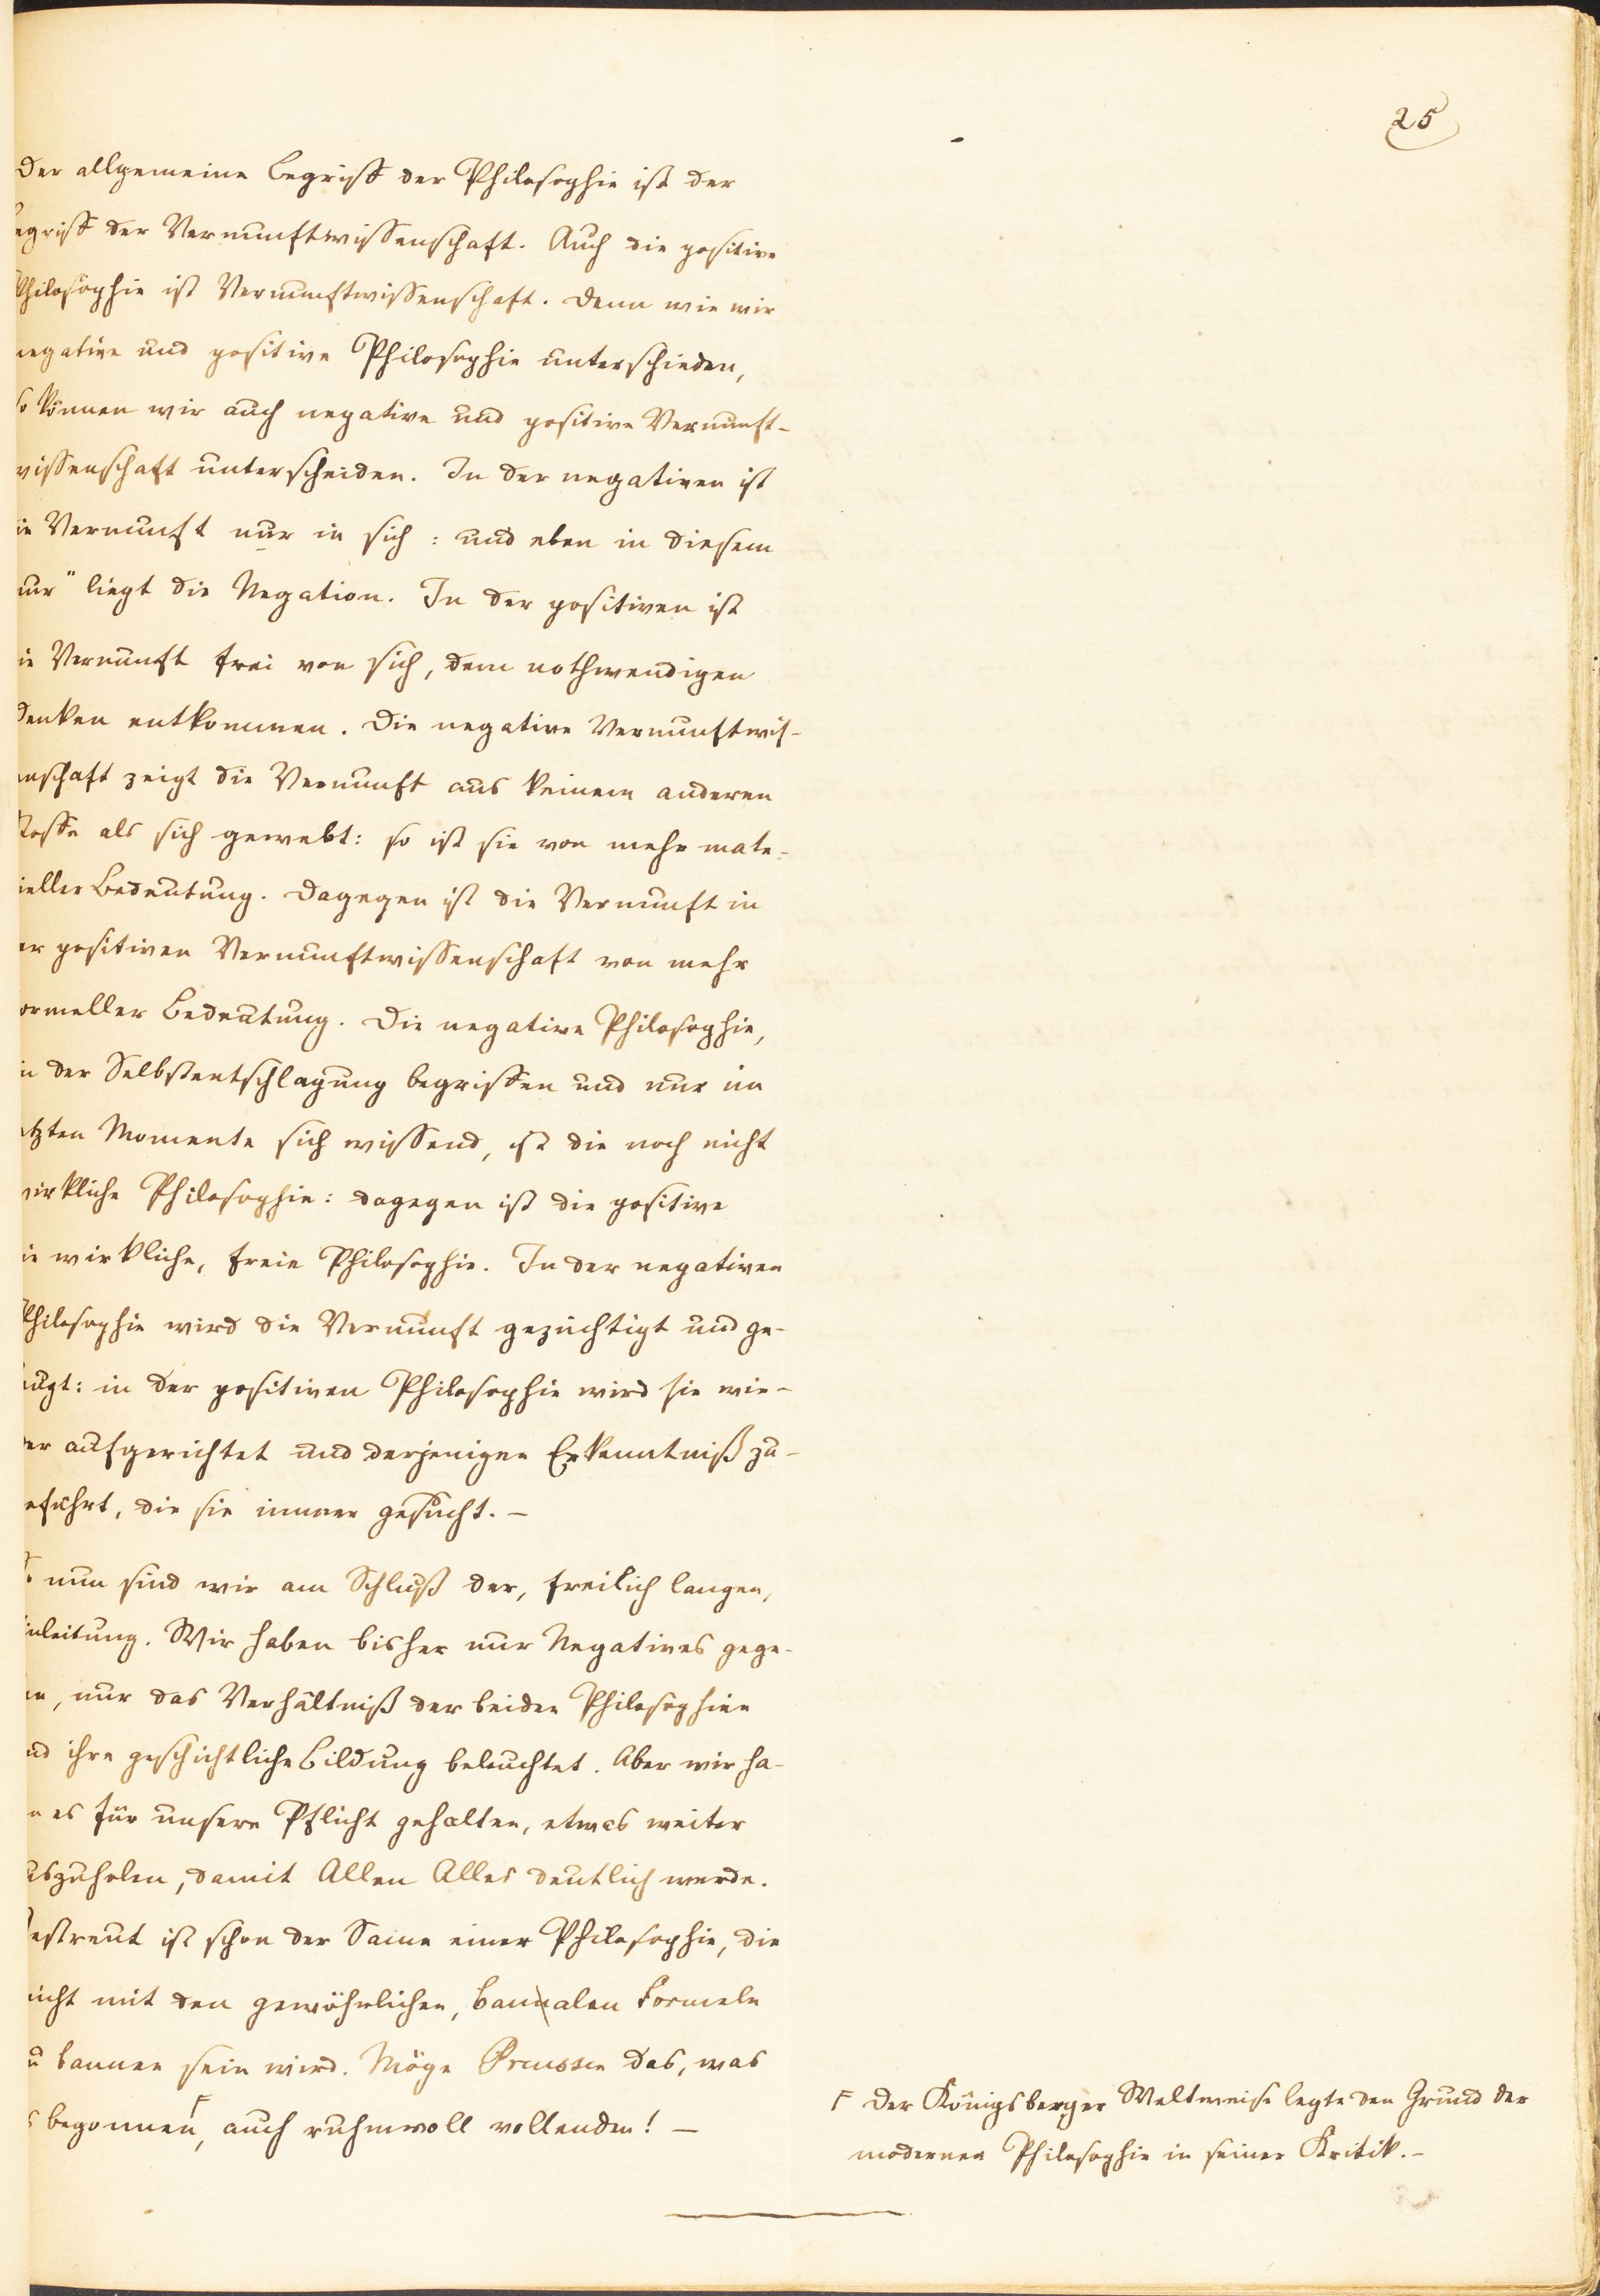 25
Der allgemeine Begriff der Philosophie ist der
egriff der Vernunftwissenschaft. Auch die positive
Philosophie ist Vernunftwissenschaft. Denn wie wir
negative und positive Philosophie unterschieden,
so können wir auch negative und positive Vernunft-
wissenschaft unterscheiden. In der negativen ist
ie Vernunft nur in sich: und eben in diesem
nur" liegt die Negation. In der positiven ist
ie Vernunft frei von sich, dem nothwendigen
Denken entkommen. Die negative Vernunftwis-
enschaft zeigt die Vernunft aus keinem anderen
Stoffe als sich gewebt: so ist sie von mehr mate-
ieller Bedeutung. Dagegen ist die Vernunft in
er positiven Vernunftwissenschaft von mehr
ormeller Bedeutung. Die negative Philosophie,
in der Selbstentschlagung begriffen und nur im
etzten Momente sich wissend, ist die noch nicht
wirkliche Philosophie: dagegen ist die positive
ie wirkliche, freie Philosophie. In der negativen
Philosophie wird die Vernunft gezüchtigt und ge-
eugt: in der positiven Philosophie wird sie wie-
der aufgerichtet und derjenigen Erkenntniß zu-
eführt, die sie immer gesucht. –
So nun sind wir am Schluß der, freilich langen,
inleitung. Wir haben bisher nur Negatives gege-
en, nur das Verhältniß der beiden Philosophien
nd ihre geschichtliche Bildung beleuchtet. Aber wir ha-
n es für unsere Pflicht gehalten, etwas weiter
uszuholen, damit Allen Alles deutlich werde.
Gestreut ist schon der Saame einer Philosophie, die
nicht mit den gewöhnlichen, bannalen Formeln
u bannen sein wird. Möge Preussen das, was
s begonnen Γ, auch ruhmvoll vollenden! –
Γ Der Königsberger Weltweise legte den Grund der
modernen Philosophie in seiner Kritik. –